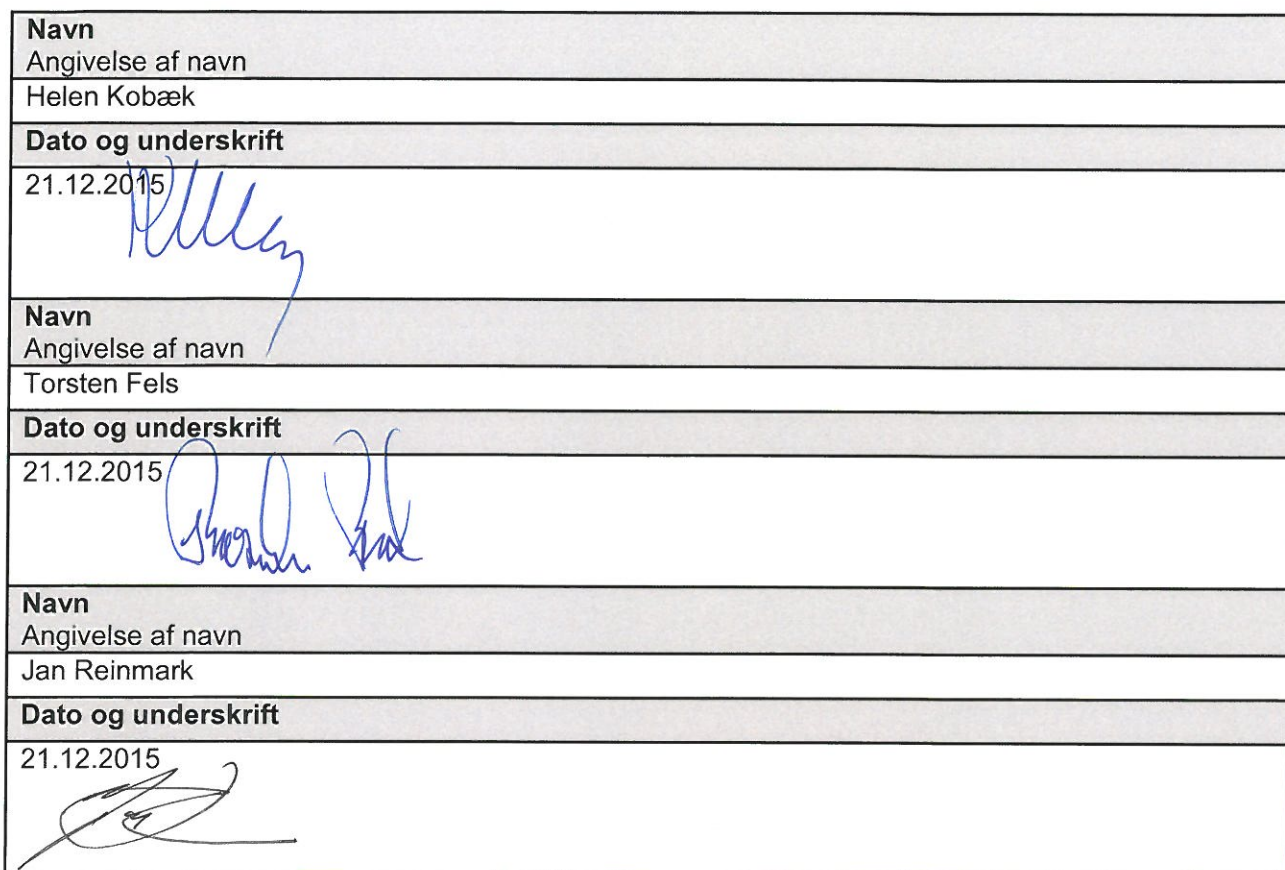 Navn
Angivelse af navn
Helen Kobæk
Dato og underskrift
21.12.2015
Navn
Angivelse af navn
Torsten Fels
Dato og underskrift
21.12.2015
Navn
Angivelse af navn
Jan Reinmark
Dato og underskrift
21.12.2015